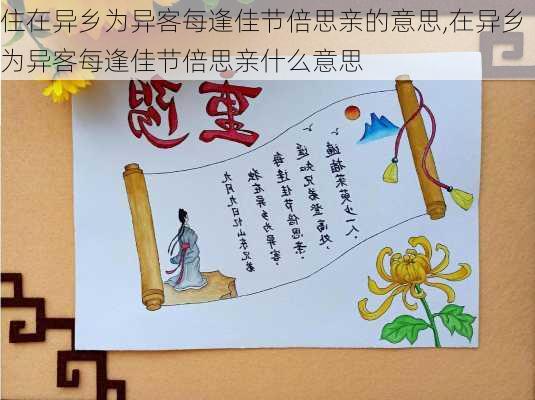 住在异乡为异客每逢佳节倍思亲的意思,在异乡
为异客每逢佳节倍思亲什么意思
重陽
九月九日忆山东兄弟
独在异乡为异客，
每逢佳节倍思亲。
遥知兄弟登高处，
遍插茱萸少一人。